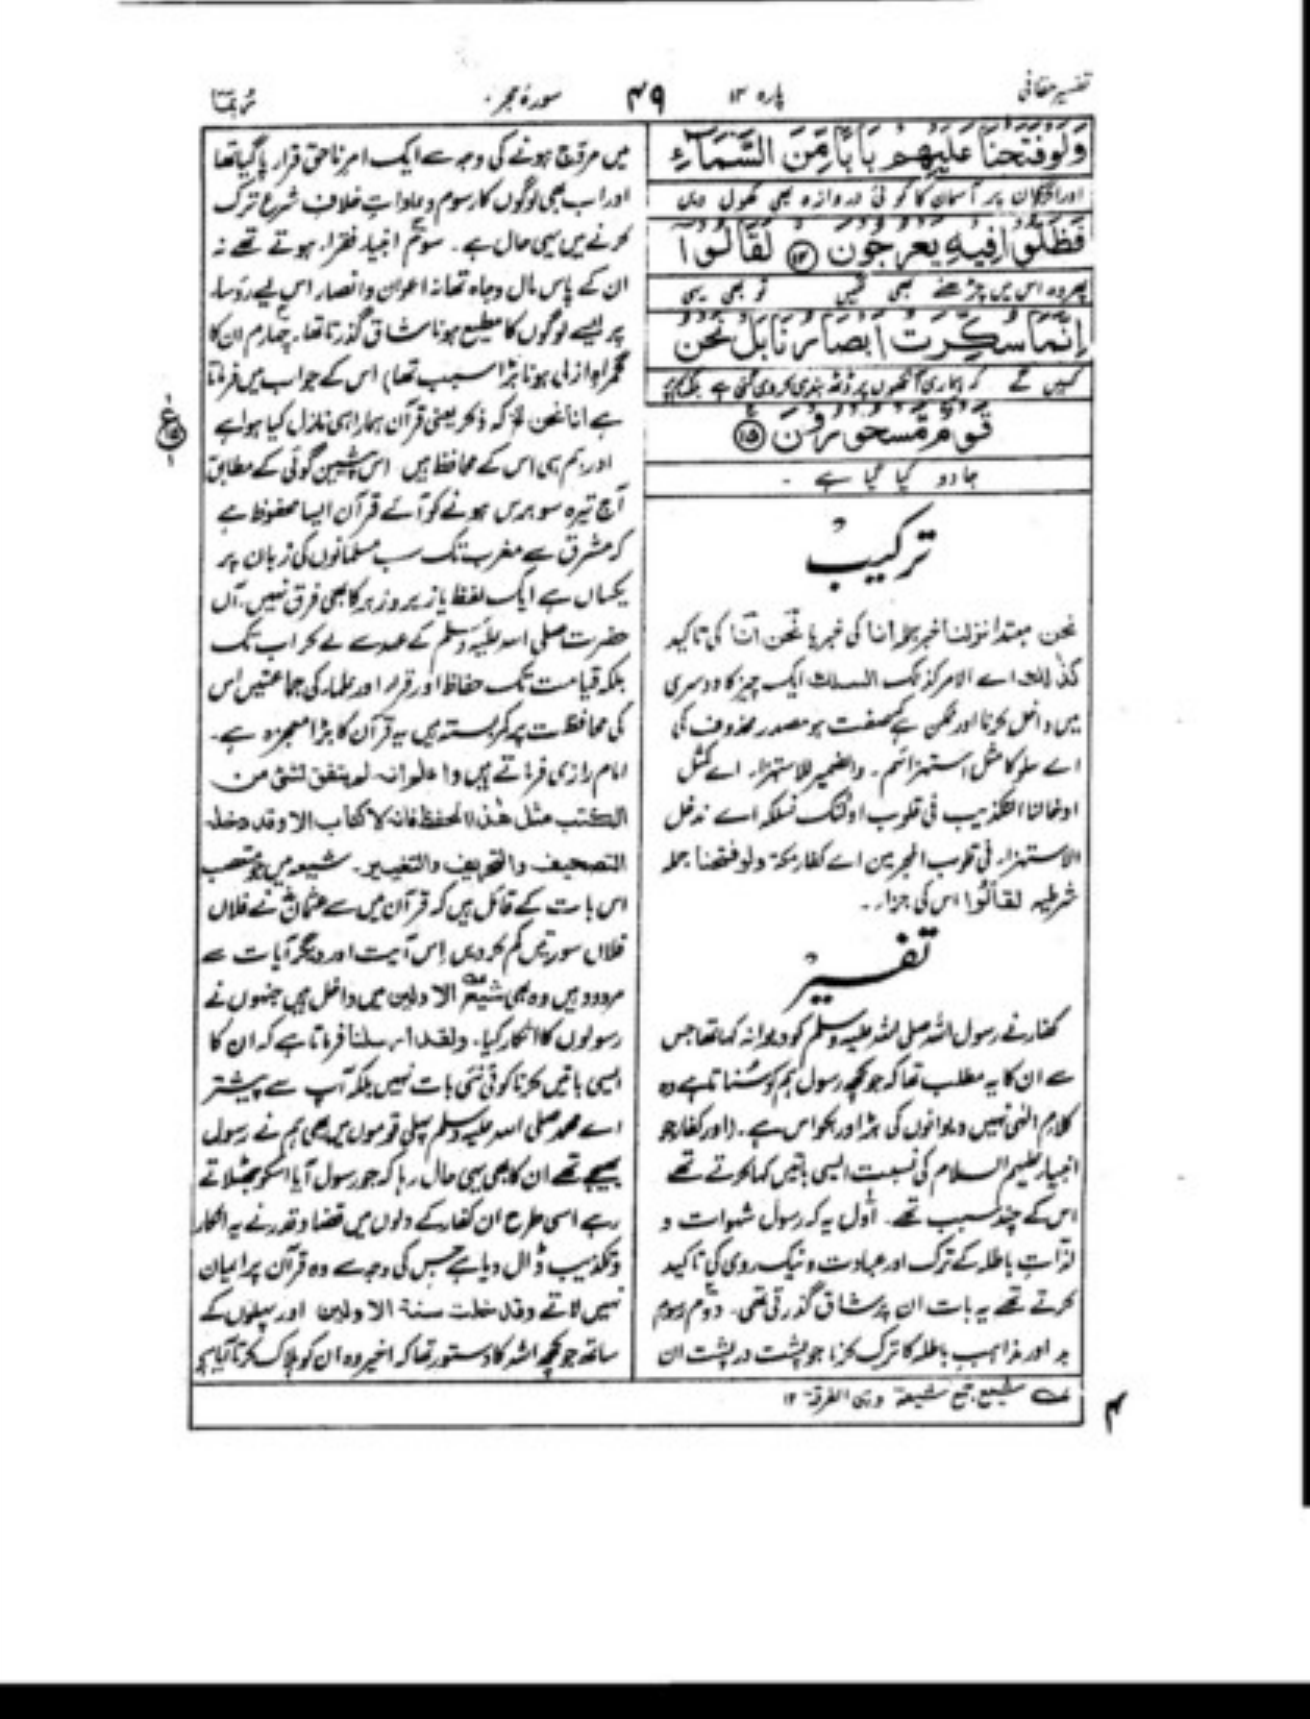 تفسیر حقانی
پارہ ۱۴
۴۹
سورۂ حجر
رُبَمَا
وَلَوْ فَتَحْنَا عَلَيْهِمْ بَابًا مِّنَ السَّمَاءِ
اور اگر ان پر آسمان کا کوئی دروازہ بھی کھول دیں
فَظَلُّوْا فِيْهِ يَعْرُجُوْنَ ۱۴ لَقَالُوْآ
پھر وہ اس میں چڑھنے بھی لگیں تو بھی یہی
اِنَّمَا سُكِّرَتْ اَبْصَارُنَا بَلْ نَحْنُ
کہیں گے کہ ہماری آنکھوں پر ڈٹھ بندی کر دی گئی ہے بلکہ ہم پر
قَوْمٌ مَّسْحُوْرُوْنَ ۱۵
جادو کیا گیا ہے ۔
ترکیب
نحن مبتدا نزلنا خبر جملہ انا کی خبر یا نحن انا کی تاکید
کذٰلك اے الامر کذلک السلك ایک چیز کا دوسری
میں داخل کرنا اور ممکن ہے کہ صفت ہو مصدر محذوف کی
اے سلوکا مثل استہزائہم ۔ والضمیر للاستہزاء اے کمثل
ادخالنا التکذیب فی قلوب اولئک نسلکہ اے ندخل
الاستہزاء فی قلوب المجرمین اے کفار مکۃ ولو فتحنا جملہ
شرطیہ لقالُوا اس کی جزاء ۔
تفسیر
کفار نے رسول اللہ صلی اللہ علیہ وسلم کو دیوانہ کہا تھا جس
سے ان کا یہ مطلب تھا کہ جو کچھ رسول ہم کو سُناتا ہے وہ
کلام الٰہی نہیں دیوانوں کی بڑ اور بکواس ہے ۔ (اور کفار جو
انبیاء علیہم السلام کی نسبت ایسی باتیں کہا کرتے تھے
اس کے چند سبب تھے ۔ اوّل یہ کہ رسول شہوات و
لذّاتِ باطلہ کے ترک اور عبادت و نیک روی کی تاکید
کرتے تھے یہ بات ان پر شاق گذرتی تھی ۔ دوّم رسوم
بد اور مذاہب باطلہ کا ترک کرنا جو پشت در پشت ان
میں مروّج ہونے کی وجہ سے ایک امر ناحق قرار پا گیا تھا
اور اب بھی لوگوں کا رسوم و عاداتِ خلافِ شرع ترک
کرنے میں یہی حال ہے ۔ سوّم انبیاء فقراء ہوتے تھے نہ
ان کے پاس مال و جاہ تھا نہ اعوان و انصار اس لیے رؤسا
پر ایسے لوگوں کا مطیع ہونا شاق گذرتا تھا ۔ چہارم ان کا
گمراہ ازلی ہونا بڑا سبب تھا) اس کے جواب میں فرماتا
ہے انا نحن الخ کہ ذکر یعنی قرآن ہمارا ہی نازل کیا ہوا ہے
اور ہم ہی اس کے محافظ ہیں اس پیشین گوئی کے مطابق
آج تیرہ سو برس ہونے کو آئے قرآن ایسا محفوظ ہے
کہ مشرق سے مغرب تک سب مسلمانوں کی زبان پر
یکساں ہے ایک لفظ یا زیر و زبر کا بھی فرق نہیں ۔ آں
حضرت صلی اللہ علیہ وسلم کے عہد سے لے کر اب تک
بلکہ قیامت تک حفاظ اور قراء اور علماء کی جماعتیں اس
کی محافظت پر کمربستہ ہیں یہ قرآن کا بڑا معجزہ ہے ۔
امام رازی فرماتے ہیں واعلم انہ لم یتفق لشئ من
الکتب مثل ھٰذا الحفظ فانہ لا کتاب الا وقد دخلہ
التصحیف والتحریف والتغییر ۔ شیعہ میں جو متعصب
اس بات کے قائل ہیں کہ قرآن میں سے عثمانؓ نے فلاں
فلاں سورتیں کم کر دیں اِس آیت اور دیگر آیات سے
مردود ہیں وہ بھی شیع الاولین میں داخل ہیں جنہوں نے
رسولوں کا انکار کیا ۔ ولقد ارسلنا فرماتا ہے کہ ان کا
ایسی باتیں کرنا کوئی نئی بات نہیں بلکہ آپ سے پیشتر
اے محمد صلی اللہ علیہ وسلم پہلی قوموں میں بھی ہم نے رسول
بھیجے تھے ان کا بھی یہی حال رہا کہ جو رسول آیا اسکو جھٹلاتے
رہے اسی طرح ان کفار کے دلوں میں قضا و قدر نے یہ انکار
و تکذیب ڈال دیا ہے جس کی وجہ سے وہ قرآن پر ایمان
نہیں لاتے وقد خلت سنة الاولین اور پہلوں کے
ساتھ جو کچھ اللہ کا دستور تھا کہ اخیر وہ ان کو ہلاک کرتا آیا ہے
شیع جمع شیعة وہی الفرقة ۱۲
۴